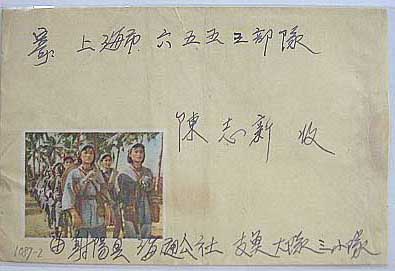 寄 上海市 六五五三部隊
陳志新 收
射陽县 海通公社 支英大隊三小隊
1089-2